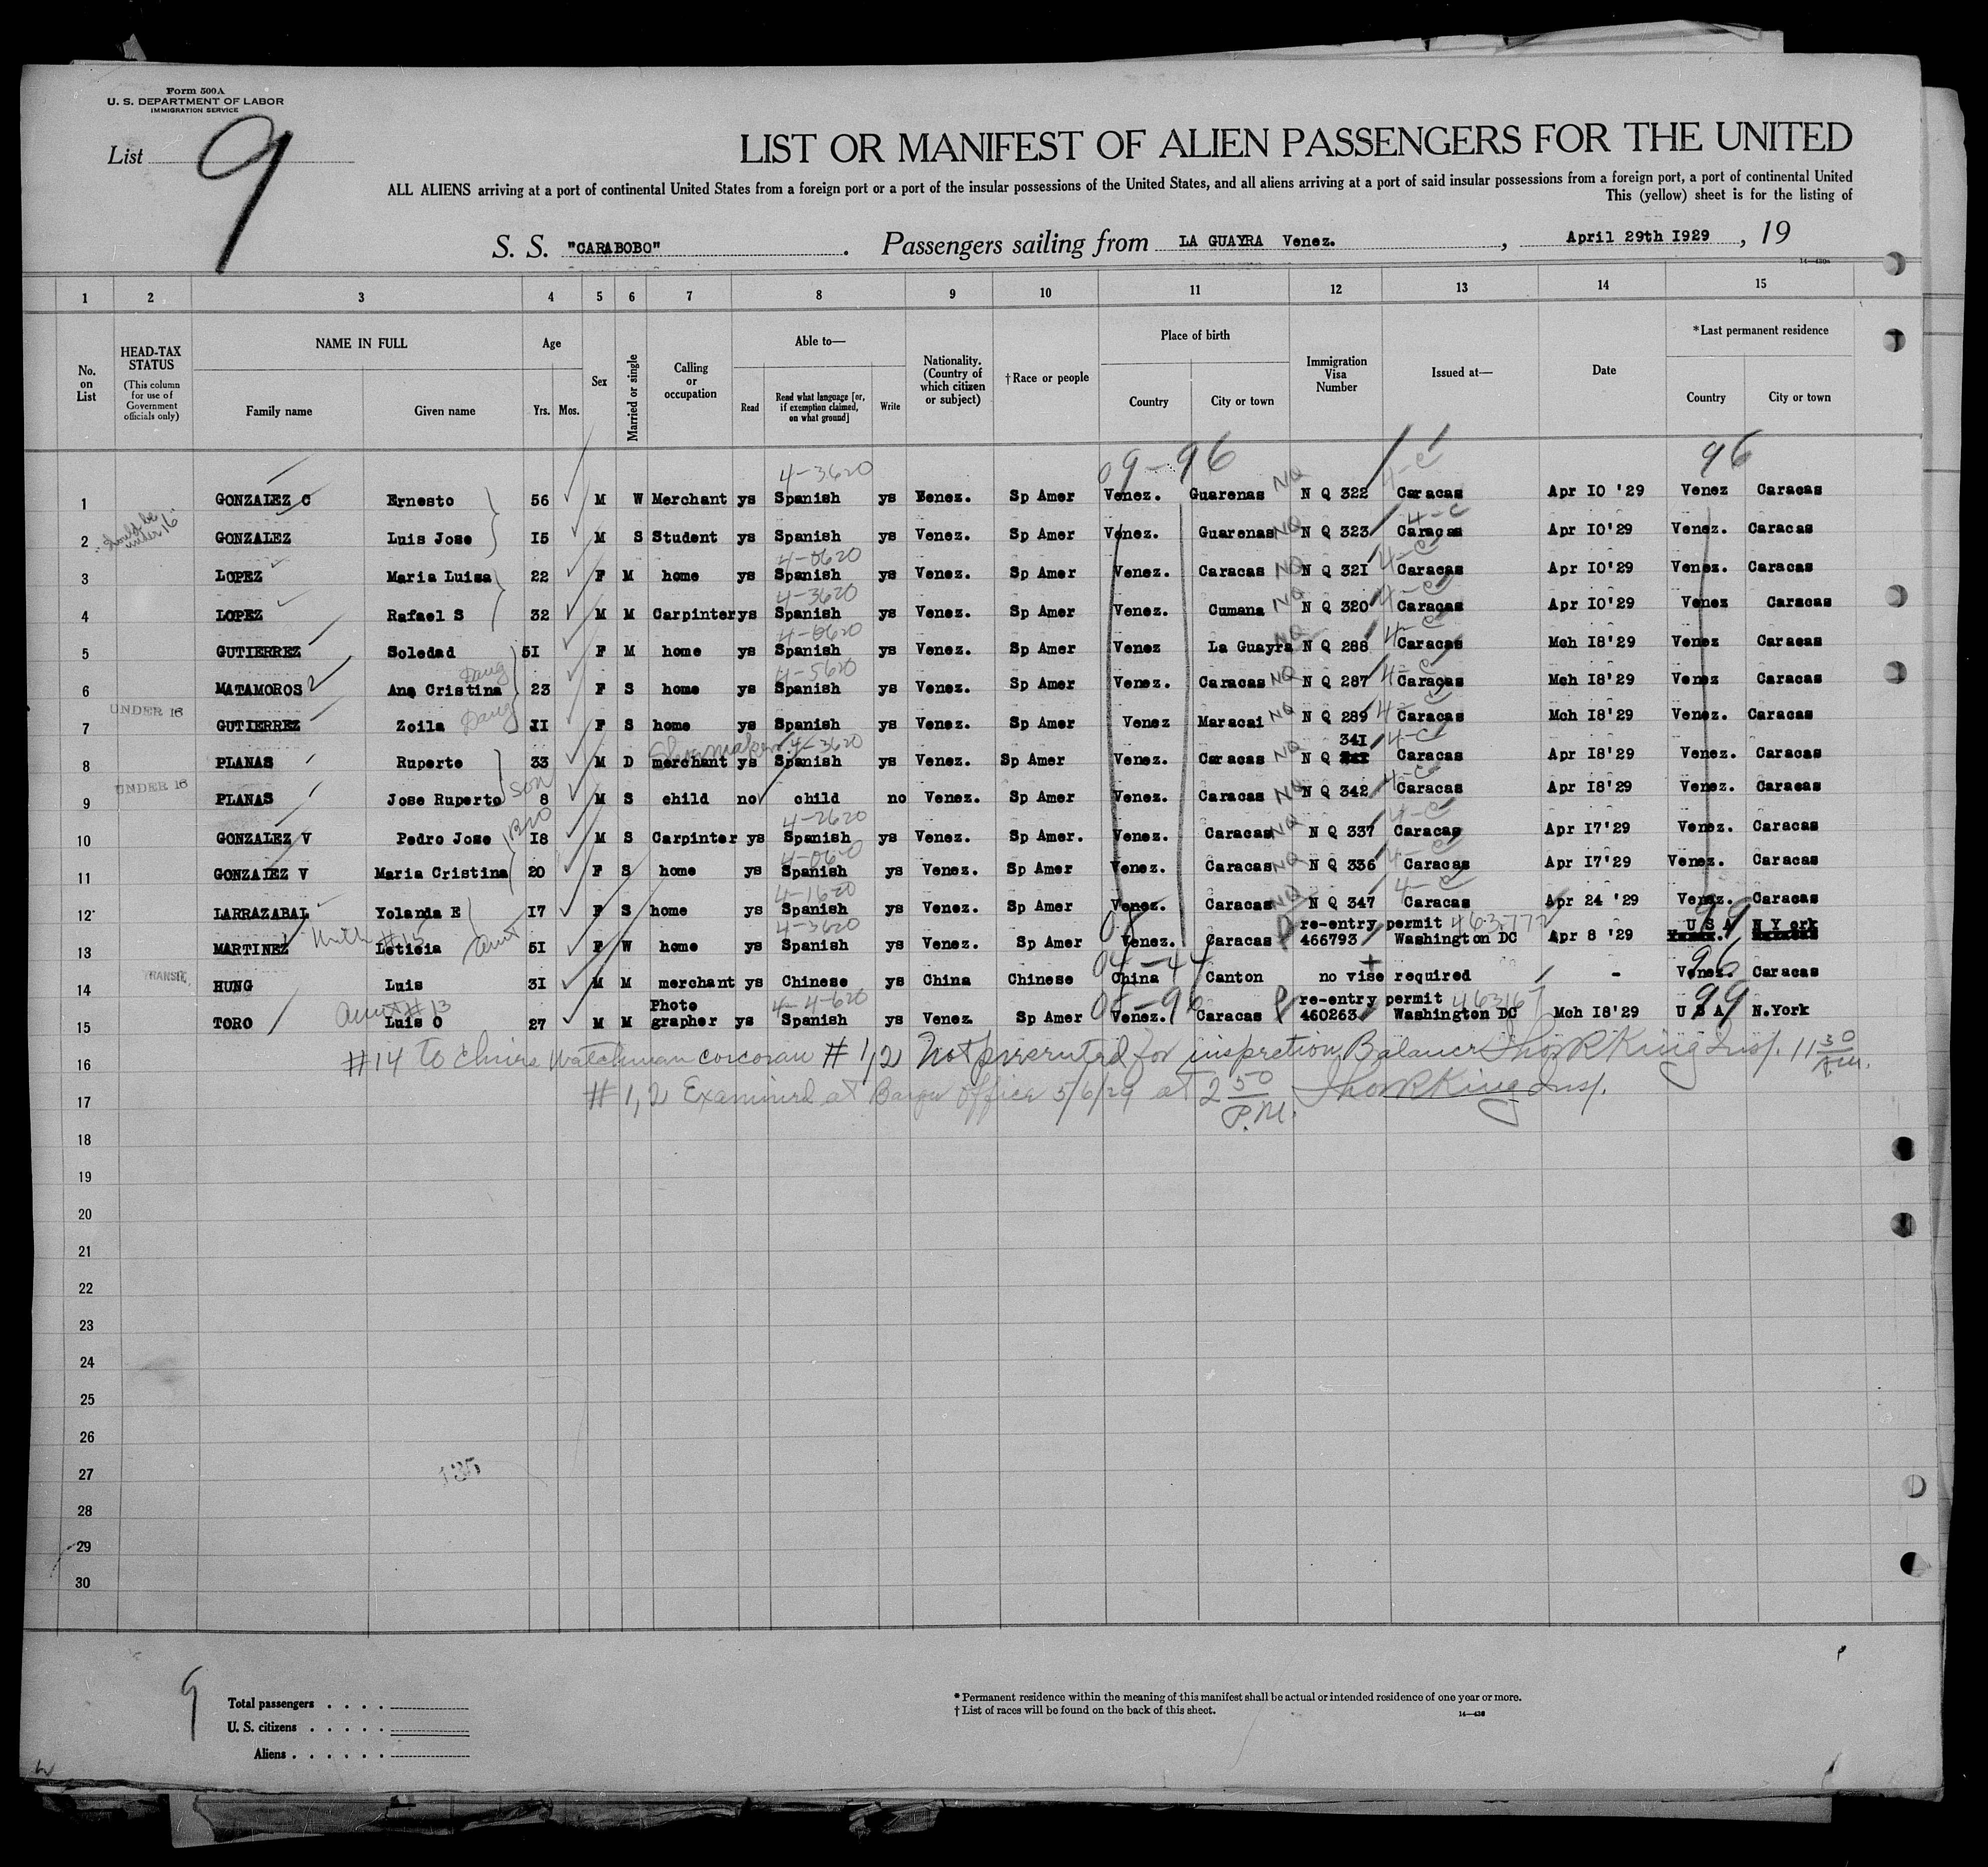 Form 500A
U. S. DEPARTMENT OF LABOR
IMMIGRATION SERVICE
List 9
LIST OR MANIFEST OF ALIEN PASSENGERS FOR THE UNITED
ALL ALIENS arriving at a port of continental United States from a foreign port or a port of the insular possessions of the United States, and all aliens arriving at a port of said insular possessions from a foreign port, a port of continental United
This (yellow) sheet is for the listing of
S. S. "CARABOBO". Passengers sailing from LA GUAYRA Venez., April 29th 1929, 19
14—430a
1 2 3 4 5 6 7 8 9 10 11 12 13 14 15
No. on List
HEAD-TAX STATUS (This column for use of Government officials only)
NAME IN FULL
Family name Given name
Age
Yrs. Mos.
Sex
Married or single
Calling or occupation
Able to—
Read Read what language [or, if exemption claimed, on what ground] Write
Nationality. (Country of which citizen or subject)
†Race or people
Place of birth
Country City or town
Immigration Visa Number
Issued at—
Date
*Last permanent residence
Country City or town
09-96 96
4-3620
1 GONZALEZ C Ernesto 56 M W Merchant ys Spanish ys Venez. Sp Amer Venez. Guarenas NQ N Q 322 Caracas 4-C Apr 10 '29 Venez Caracas
2 Should be under 16 GONZALEZ Luis Jose 15 M S Student ys Spanish ys Venez. Sp Amer Venez. Guarenas NQ N Q 323 Caracas 4-C Apr 10'29 Venez. Caracas
4-0620
3 LOPEZ Maria Luisa 22 F M home ys Spanish ys Venez. Sp Amer Venez. Caracas NQ N Q 321 4-C Caracas Apr 10'29 Venez. Caracas
4-3620
4 LOPEZ Rafael S 32 M M Carpinter ys Spanish ys Venez. Sp Amer Venez. Cumana NQ N Q 320 4-C Caracas Apr 10'29 Venez Caracas
4-0620
5 GUTIERREZ Soledad 51 F M home ys Spanish ys Venez. Sp Amer Venez La Guayra NQ N Q 288 4-C Caracas Mch 18'29 Venez Caracas
4-5620
6 MATAMOROS Ana Cristina Daug 23 F S home ys Spanish ys Venez. Sp Amer Venez. Caracas NQ N Q 287 4-C Caracas Mch 18'29 Venez Caracas
7 UNDER 16 GUTIERREZ Zoila Daug 11 F S home ys Spanish ys Venez. Sp Amer Venez Maracai NQ N Q 289 4-C Caracas Mch 18'29 Venez. Caracas
Shoemaker 4-3620 341 4-C
8 PLANAS Ruperto 33 M D merchant ys Spanish ys Venez. Sp Amer Venez. Caracas NQ N Q Caracas Apr 18'29 Venez. Caracas
9 UNDER 16 PLANAS Jose Ruperto Son 8 M S child no child no Venez. Sp Amer Venez. Caracas NQ N Q 342 4-C Caracas Apr 18'29 Venez. Caracas
4-2620
10 GONZALEZ V Pedro Jose Bro 18 M S Carpinter ys Spanish ys Venez. Sp Amer. Venez. Caracas NQ N Q 337 4-C Caracas Apr 17'29 Venez. Caracas
11 GONZALEZ V Maria Cristina 20 F S home ys Spanish ys Venez. Sp Amer Venez. Caracas NQ N Q 336 4-C Caracas Apr 17'29 Venez. Caracas
4-1620
12 LARRAZABAL Yolanda E 17 F S home ys Spanish ys Venez. Sp Amer Venez. Caracas NQ N Q 347 4-C Caracas Apr 24 '29 Venez. Caracas
4-3620 08 re-entry permit 463772 U S A 99 N York
13 MARTINEZ Leticia Aunt 51 F W home ys Spanish ys Venez. Sp Amer Venez. Caracas 466793 Washington DC Apr 8 '29
04-44 96
14 TRANSIT HUNG Luis 31 M M merchant ys Chinese ys China Chinese China Canton no vise required - Venez. Caracas
Aunt #13 Photo 4-4-620 08-96 re-entry permit 463167 99
15 TORO Luis O 27 M M grapher ys Spanish ys Venez Sp Amer Venez. Caracas 460263 Washington DC Mch 18'29 U S A N.York
16 #14 to Chinese Watchman Corcoran #1,2 Not presented for inspection Balance Thos R King Insp. 11 30 A.M.
17 #1,2 Examined at Barge Office 5/6/29 at 2 50 P.M. Thos R King Insp.
18
19
20
21
22
23
24
25
26
27
28
29
30
135
9
Total passengers . . . .
U. S. citizens . . . . .
Aliens . . . . . .
* Permanent residence within the meaning of this manifest shall be actual or intended residence of one year or more.
† List of races will be found on the back of this sheet.